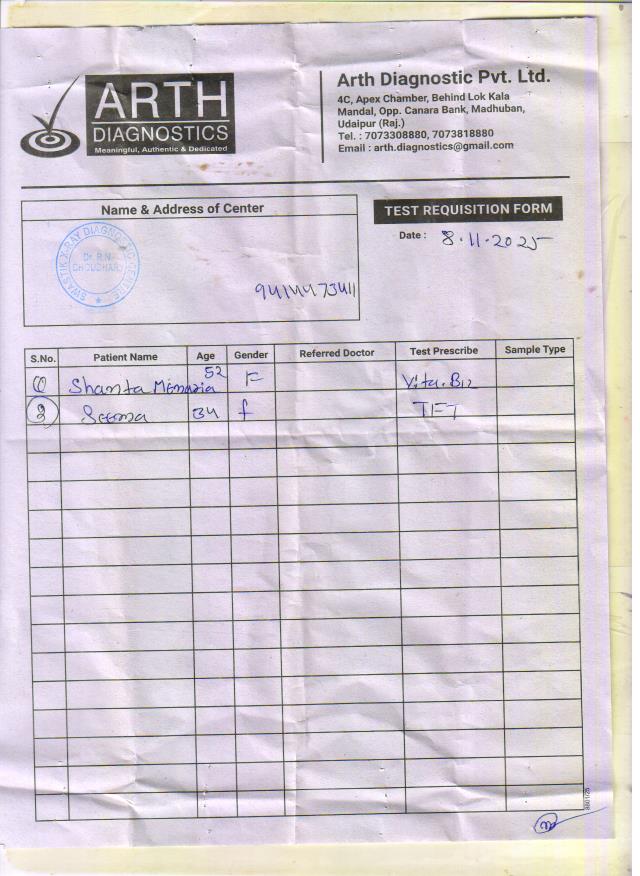 ARTH
DIAGNOSTICS
Meaningful, Authentic & Dedicated
Arth Diagnostic Pvt. Ltd.
4C, Apex Chamber, Behind Lok Kala
Mandal, Opp. Canara Bank, Madhuban,
Udaipur (Raj.)
Tel. : 7073308880, 7073818880
Email : arth.diagnostics@gmail.com
Name & Address of Center
TEST REQUISITION FORM
Date : 8.11.2025
SWASTIK X-RAY DIAGNOSTIC CENTRE
Dr. R.N.
CHOUDHARY
S.No. Patient Name Age Gender Referred Doctor Test Prescribe Sample Type
1 Shanta Menaria 52 F Vita. B12
2 Seema 34 f TFT